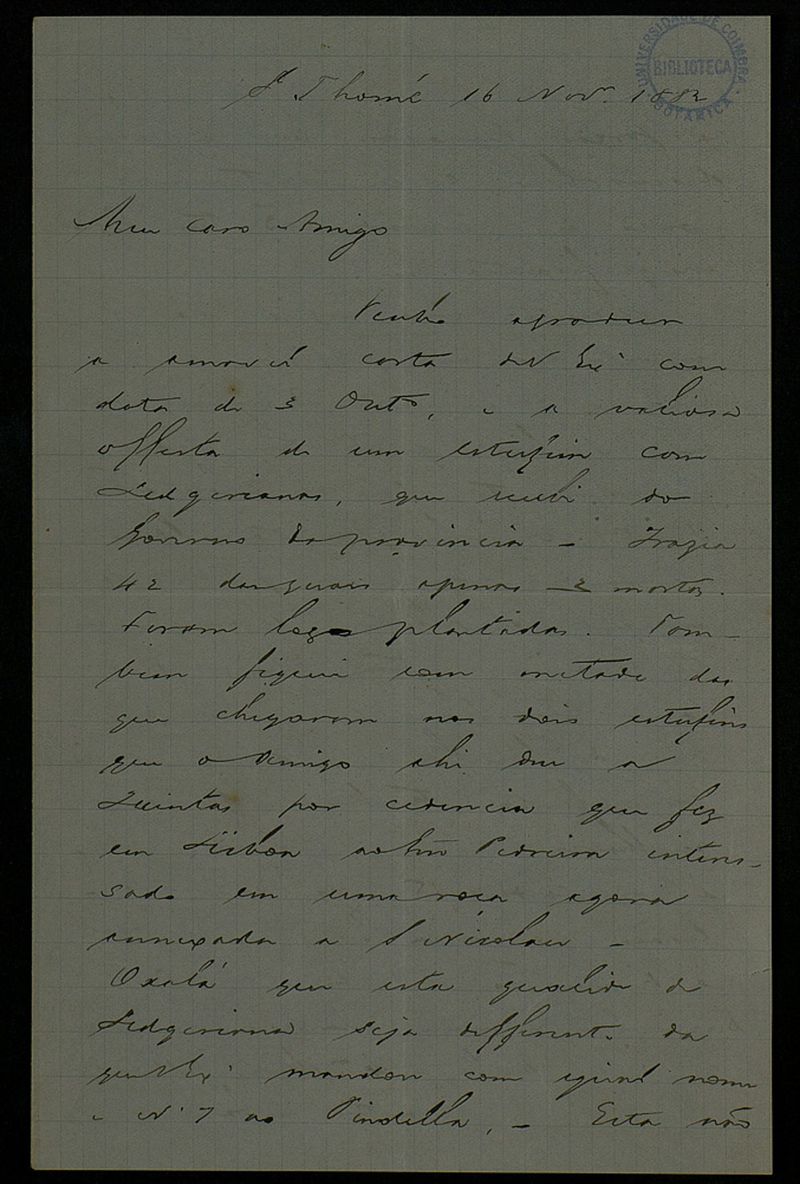 UNIVERSIDADE DE COIMBRA
BIBLIOTECA
BOTANICA
S. Thomé 16 Nov. 1882
Meu caro Amigo
Venho agradecer
a amavel carta de V Exª com
data de 3 Outº, e a valiosa
offerta de um estufim com
Ledgerianas, que recebi do
Governo da provincia - Trazia
42 das quais apenas 2 mortas.
Foram logo plantadas. Tam-
bem fiquei com metade das
que chegaram nos dois estufins
que o Amigo ahi deu a
Quintas por cedencia que fez
em Lisboa ao Pedreira interes-
sado em uma roça agora
annexada a S Nicolau -
Oxalá que esta qualide de
Ledgeriana seja different. da
que V Exª mandou com egual nome
e Nº 7 ao Pindella, - Esta não